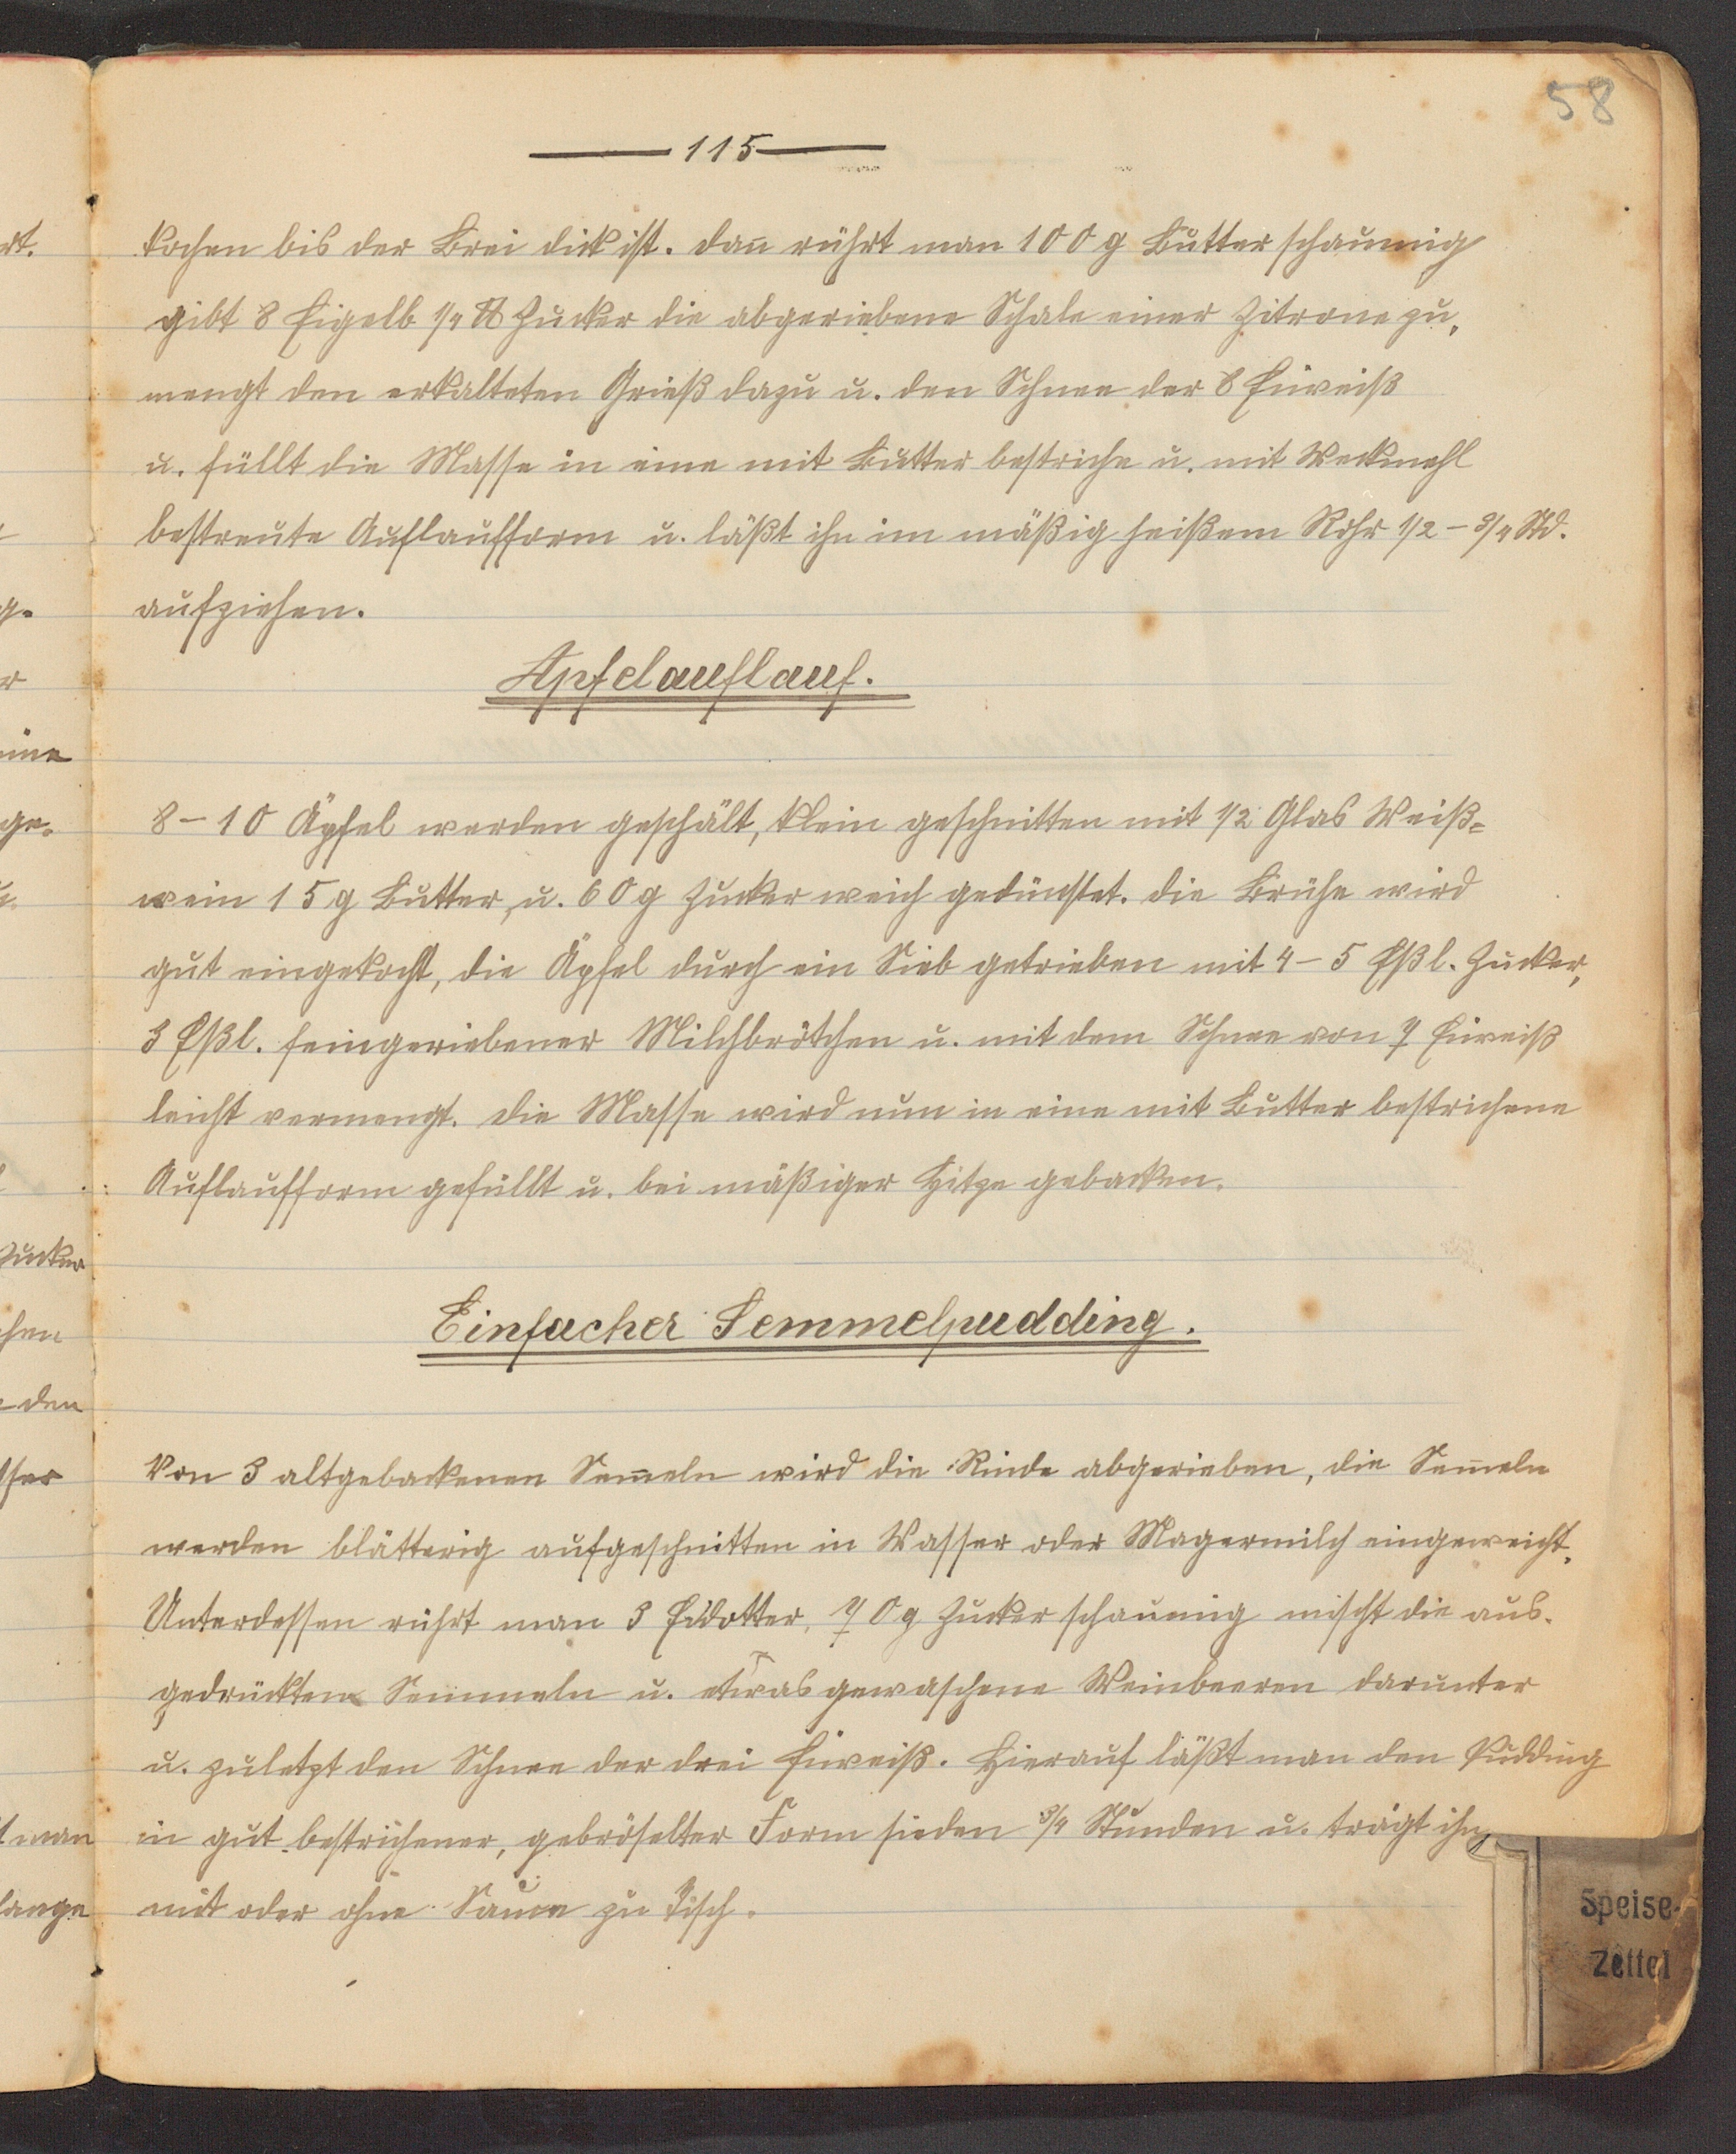 58
115
kochen bis der Brei dick ist. Dan̄ rührt man 100 g Butter schaumig
gibt 8 Eigelb 1/4 ℔ Zucker die abgeriebene Schale einer Zitrone zu,
mengt den erkalteten Grieß dazu u. den Schnee der 8 Eiweiß
u. füllt die Masse in eine mit Butter bestriche u. mit Weckmehl
bestreute Auflaufform u. läßt ihn im mäßig heißem Rohr 1/2 – 3/4 Std.
aufziehen.
Apfelauflauf.
8–10 Äpfel werden geschält, klein geschnitten mit 1/2 Glas Weiß=
wein 15 g Butter, u. 60 g Zucker weich gedünstet. Die Brühe wird
gut eingekocht, die Äpfel durch ein Sieb getrieben mit 4–5 Eßl. Zucker,
3 Eßl. feingeriebener Milchbrötchen u. mit dem Schnee von 7 Eiweiß
leicht vermengt. Die Masse wird nun in eine mit Butter bestrichene
Auflaufform gefüllt u. bei mäßiger Hitze gebacken.
Einfacher Semmelpudding.
Von 3 altgebackenen Sem̄eln wird die Rinde abgerieben, die Sem̄eln
werden blätterig aufgeschnitten in Wasser oder Magermilch eingeweicht.
Unterdessen rührt man 3 Eidotter, 70 g Zucker schaumig mischt die aus-
gedrückten Semmeln u. etwas gewaschene Weinbeeren darunter
u. zuletzt den Schnee der drei Eiweiß. Hierauf läßt man den Pudding
in gut bestrichener, gebröselter Form sieden 3/4 Stunden u. trägt ihn
mit oder ohne Sauce zu Tisch.
Speise-
Zettel
rt.
g.
r
eine
ge.
u.
Zucker
den
man
lange